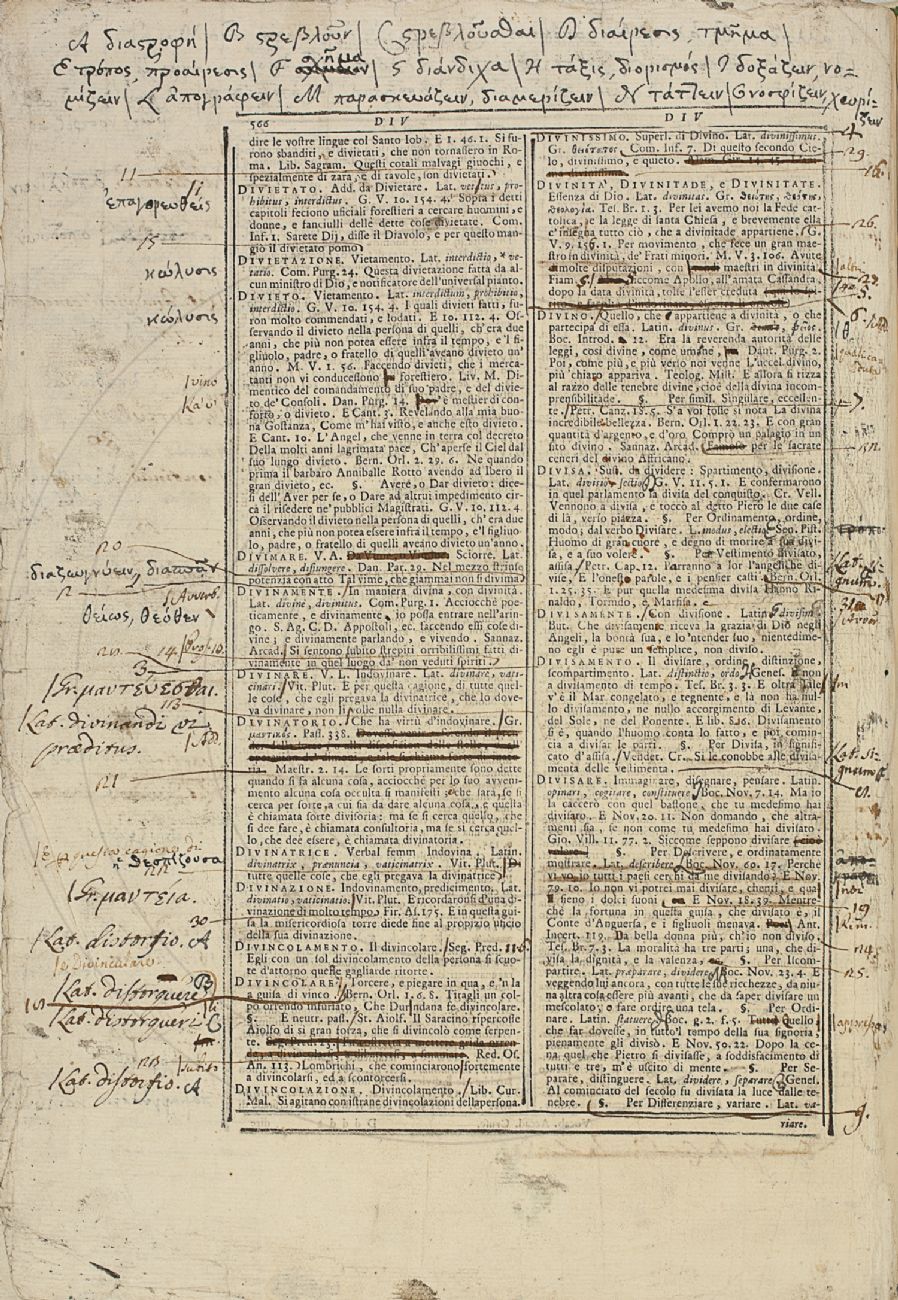 Α διαστροφή | Β στρεβλοῦν | C στρεβλοῦσθαι | D διαίρεσις, τμῆμα |
Ε τρόπος, προαίρεσις | F σχῆμα | G διάνδιχα | Η τάξις, διορισμός | I δοξάζειν, νο-
μίζειν | L ἀπογράφειν | Μ παρασκευάζειν, διαμερίζειν | Ν τάττειν | O νοσφίζειν, χωρί-
ζειν
566 DIV
dire le vostre lingue col Santo Iob. E 1. 46. 1. Si fu-
rono sbanditi, e divietati, che non tornassero in Ro-
ma. Lib. Sagram. Questi cotali malvagi giuochi, e
spezialmente di zara, e di tavole, son divietati.
DIVIETATO. Add. da Divietare. Lat. vetitus, pro-
hibitus, interdictus. G. V. 10. 154. 4. Sopra i detti
capitoli feciono uficiali forestieri a cercare huomini, e
donne, e fanciulli delle dette cose divietate. Com.
Inf. 1. Sarete Dij, disse il Diavolo, e per questo man-
giò il divietato pomo.
DIVIETAZIONE. Vietamento. Lat. interdictio, ve-
tatio. Com. Purg. 24. Questa divietazione fatta da al-
cun ministro di Dio, e notificatore dell'universal pianto.
DIVIETO. Vietamento. Lat. interdictum, prohibitio,
interdictio. G. V. 10. 154. 4. I quali divieti fatti, fu-
ron molto commendati, e lodati. E 10. 112. 4. Os-
servando il divieto nella persona di quelli, ch'era due
anni, che più non potea essere infra il tempo, e 'l fi-
gliuolo, padre, o fratello di quelli aveano divieto un'
anno. M. V. 1. 56. Faccendo divieti, che i merca-
tanti non vi conducessono forestiero. Liv. M. Di-
mentico del comandamento di suo padre, e del divie-
to de' Consoli. Dan. Purg. 14. è mestier di con-
sorto, o divieto. E Cant. 3. Revelando alla mia buo-
na Gostanza, Come m'hai visto, e anche esto divieto.
E Cant. 10. L'Angel, che venne in terra col decreto
Della molti anni lagrimata pace, Ch'aperse il Ciel dal
suo lungo divieto. Bern. Orl. 2. 29. 6. Ne quando
prima il barbaro Anniballe Rotto avendo ad Ibero il
gran divieto, ec. §. Avere, o Dar divieto: dice-
si dell'Aver per se, o Dare ad altrui impedimento cir-
ca il risedere ne' pubblici Magistrati. G. V. 10. 111. 4.
Osservando il divieto nella persona di quelli, ch'era due
anni, che più non potea essere infra il tempo, e 'l figliuo-
lo, padre, o fratello di quelli aveano divieto un'anno.
DIVIMARE. V. A. Sciorre, Lat.
dissolvere, disjungere. Dan. Par. 29. Nel mezzo strinse
potenzia con atto Tal vime, che giammai non si divima
DIVINAMENTE. In maniera divina, con divinità.
Lat. divinè, divinitus. Com. Purg. 1. Acciocchè poe-
ticamente, e divinamente, io possa entrare nell'arin-
go. S. Ag. C. D. Appostoli, ec. faccendo essi cose di-
vine; e divinamente parlando, e vivendo. Sannaz.
Arcad. Si sentono subito strepiti orribilissimi fatti di-
vinamente in quel luogo da' non veduti spiriti.
DIVINARE. V. L. Indovinare. Lat. divinare, vati-
cinari. Vit. Plut. E per questa cagione, di tutte quel-
le cose, che egli pregava la divinatrice, che lo dove-
va divinare, non li volle nulla divinare.
DIVINATORIO. Che ha virtù d'indovinare. Gr.
μαντικός. Pass. 338.
ria. Maestr. 2. 14. Le sorti propriamente sono dette
quando si fa alcuna cosa, acciocchè per lo suo avveni-
mento alcuna cosa occulta si manifesti; che sarà, se si
cerca per sorte, a cui sia da dare alcuna cosa, e questa
è chiamata sorte divisoria: ma se si cerca quello, che
si dee fare, è chiamata consultoria, ma se si cerca quel-
lo, che dee essere, è chiamata divinatoria.
DIVINATRICE. Verbal femm. Indovina. Latin.
divinatrix, pronuncia, vaticinatrix. Vit. Plut. Di
tutte quelle cose, che egli pregava la divinatrice
DIVINAZIONE. Indovinamento, predicimento. Lat.
divinatio, vaticinatio. Vit. Plut. E ricordarosi d'una di-
vinazione di molto tempo, Fir. As. 175. E in questa gui-
sa la misericordiosa torre diede fine al proprio uficio
della sua divinazione.
DIVINCOLAMENTO. Il divincolare. Seg. Pred. 11.
Egli con un sol divincolamento della persona si scuo-
te d'attorno quelle gagliarde ritorte.
DIVINCOLARE. Torcere, e piegare in qua, e 'n la
a guisa di vinco. Bern. Orl. 1. 6. 8. Tiragli un col-
po orrendo smisurato, Che Durindana se divincolare.
§. E neutr. pass. St. Aiolf. Il Saracino ripercosse
Aiolfo di sì gran forza, che si divincolò come serpen-
te. Red. Os.
An. 113. Lombrichi, che cominciarono fortemente
a divincolarsi, ed a scontorcersi.
DIVINCOLAZIONE. Divincolamento. Lib. Cur.
Mal. Si agitano con istrane divincolazioni della persona.
DIV
DIVINISSIMO. Superl. di Divino. Lat. divinissimus.
Gr. θειότατος. Com. Inf. 7. Di questo secondo Cie-
lo, divinissimo, e quieto.
DIVINITÀ, DIVINITADE, e DIVINITATE.
Essenza di Dio. Lat. divinitas. Gr. θειότης, θεότης,
θεολογία. Tes. Br. 1. 3. Per lei avemo noi la Fede cat-
tolica, e la legge di santa Chiesa, e brevemente ella
c'insegna tutto ciò, che a divinitade appartiene. G.
V. 9. 156. 1. Per movimento, che fece un gran mae-
stro in divinità, de' Frati minori. M. V. 3. 106. Avute
molte disputazioni, con maestri in divinità
Fiam. 5. Siccome Apollo, all'amata Cassandra,
dopo la data divinità, tolse l'esser creduta
DIVINO. Quello, che appartiene a divinità, o che
partecipa di essa. Latin. divinus. Gr.
Boc. Introd. n. 12. Era la reverenda autorità delle
leggi, così divine, come umane, Dant. Purg. 2.
Poi, come più, e più verso noi venne L'uccel divino,
più chiaro appariva. Teolog. Mist. E allora si rizza
al razzo delle tenebre divine, cioè della divina incom-
prensibilitade. §. Per simil. Singulare, eccellen-
te. Petr. Canz. 18. 5. S'a voi fosse sì nota La divina
incredibile bellezza. Bern. Orl. 1. 22. 23. E con gran
quantità d'argento, e d'oro, Comprò un palagio in un
sito divino. Sannaz. Arcad. per le sacrate
ceneri del divino Affricano.
DIVISA. Sust. da dividere: Spartimento, divisione.
Lat. divisio, sectio. G. V. 11. 5. 1. E confermarono
in quel parlamento la divisa del conquisto. Cr. Vell.
Vennono a divisa, e toccò al detto Piero le due case
di là, verso piazza. §. Per Ordinamento, ordine,
modo; dal verbo Divisare. L. modus, electio. Sen. Pist.
l'huomo di gran cuore, e degno di morire a sua divi-
sa, e a suo volere. §. Per Vestimento divisato,
assisa. Petr. Cap. 12. Parranno a lor l'angeliche di-
vise, E l'oneste parole, e i pensier casti. Bern. Orl.
1. 25. 35. E pur quella medesima divisa Hanno Ri-
naldo, Torindo, e Marfisa.
DIVISAMENTE. Con divisione. Latin. divisim.
But. Che divisamente riceva la grazia di Dio negli
Angeli, la bontà sua, e lo 'ntender suo, nientedime-
no egli è pure un semplice, non diviso.
DIVISAMENTO. Il divisare, ordine, distinzione,
scompartimento. Lat. distinctio, ordo. Genes. 1. non
a divisamento di tempo. Tes. Br. 3. 3. E oltra Tile
v'è il Mar. congelato, e tegnente, e là non ha nul-
lo divisamento, ne nullo accorgimento di Levante,
del Sole, ne del Ponente. E lib. 8. 16. Divisamento
si è, quando l'huomo conta lo fatto, e poi comin-
cia a divisar le parti. §. Per Divisa, in signifi-
cato d'assisa. Vendet. Cr. Si le conobbe alle divisa-
menta delle vestimenta.
DIVISARE. Immaginare, disegnare, pensare. Latin.
opinari, cogitare, constituere. Boc. Nov. 7. 14. Ma io
la caccerò con quel bastone, che tu medesimo hai
divisato. E Nov. 20. 11. Non domando, che altra-
menti sia, se non come tu medesimo hai divisato.
Gio. Vill. 11. 77. 2. Siccome seppono divisare
§. Per Descrivere, e ordinatamente
mostrare. Lat. describere. Boc. Nov. 60. 17. Perche
vi vo io tutti i paesi cerchi da me divisando? E Nov.
79. 10. Io non vi potrei mai divisare, chenti, e qua
i sieno i dolci suoni E Nov. 18. 39. Mentre
che la fortuna in questa guisa, che divisato è, il
Conte d'Anguersa, e i figliuoli menava. Ant.
Incert. 119. Da bella donna più, ch'io non diviso.
Tes. Br. 7. 3. La moralità ha tre parti; una, che di-
visa la dignità, e la valenza, ec. §. Per Iscom-
partire. Lat. præparare, dividere. Boc. Nov. 23. 4. E
veggendo lui ancora, con tutte le sue ricchezze, da niu-
na altra cosa essere più avanti, che da saper divisare un
mescolato, o fare ordire una tela. §. Per Ordi-
nare. Latin. statuere. Boc. g. 2. f. 5. Quello,
che far dovesse, in tutto 'l tempo della sua signoria,
pienamente gli divisò. E Nov. 50. 22. Dopo la ce-
na quel, che Pietro si divisasse, a soddisfacimento di
tutti e tre, m'è uscito di mente. §. Per Se-
parare, distinguere. Lat. dividere, separare. Genes.
Al cominciato del secolo fu divisata la luce dalle te-
nebre. §. Per Differenziare, variare. Lat. va-
riare.
11
ἐπαγορευθείς
15
κώλυσις
κώλυσις
20
διαζωγνύειν, διασπᾶν
θείως, θεόθεν
Gr. μαντεύεσθαι.
113
Lat. divinandi vi
præditus.
21
ἡ θεσπίζουσα
Gr. μαντεία.
30
Lat. distorsio. A
Lat. distorquere B
Lat. distorqueri C
Lat. distorsio. A
29.
26.
7.
Lat. si-
gnum
19
25.
9.